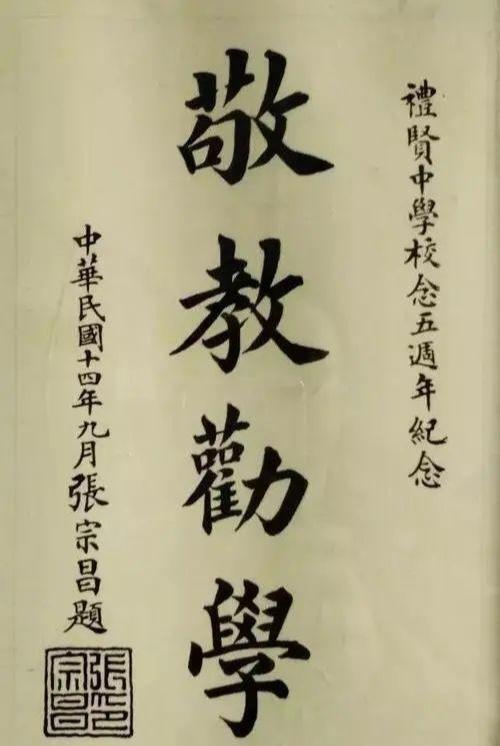 禮賢中學校念五週年紀念
敬教勸學
中華民國十四年九月張宗昌題
張宗昌印